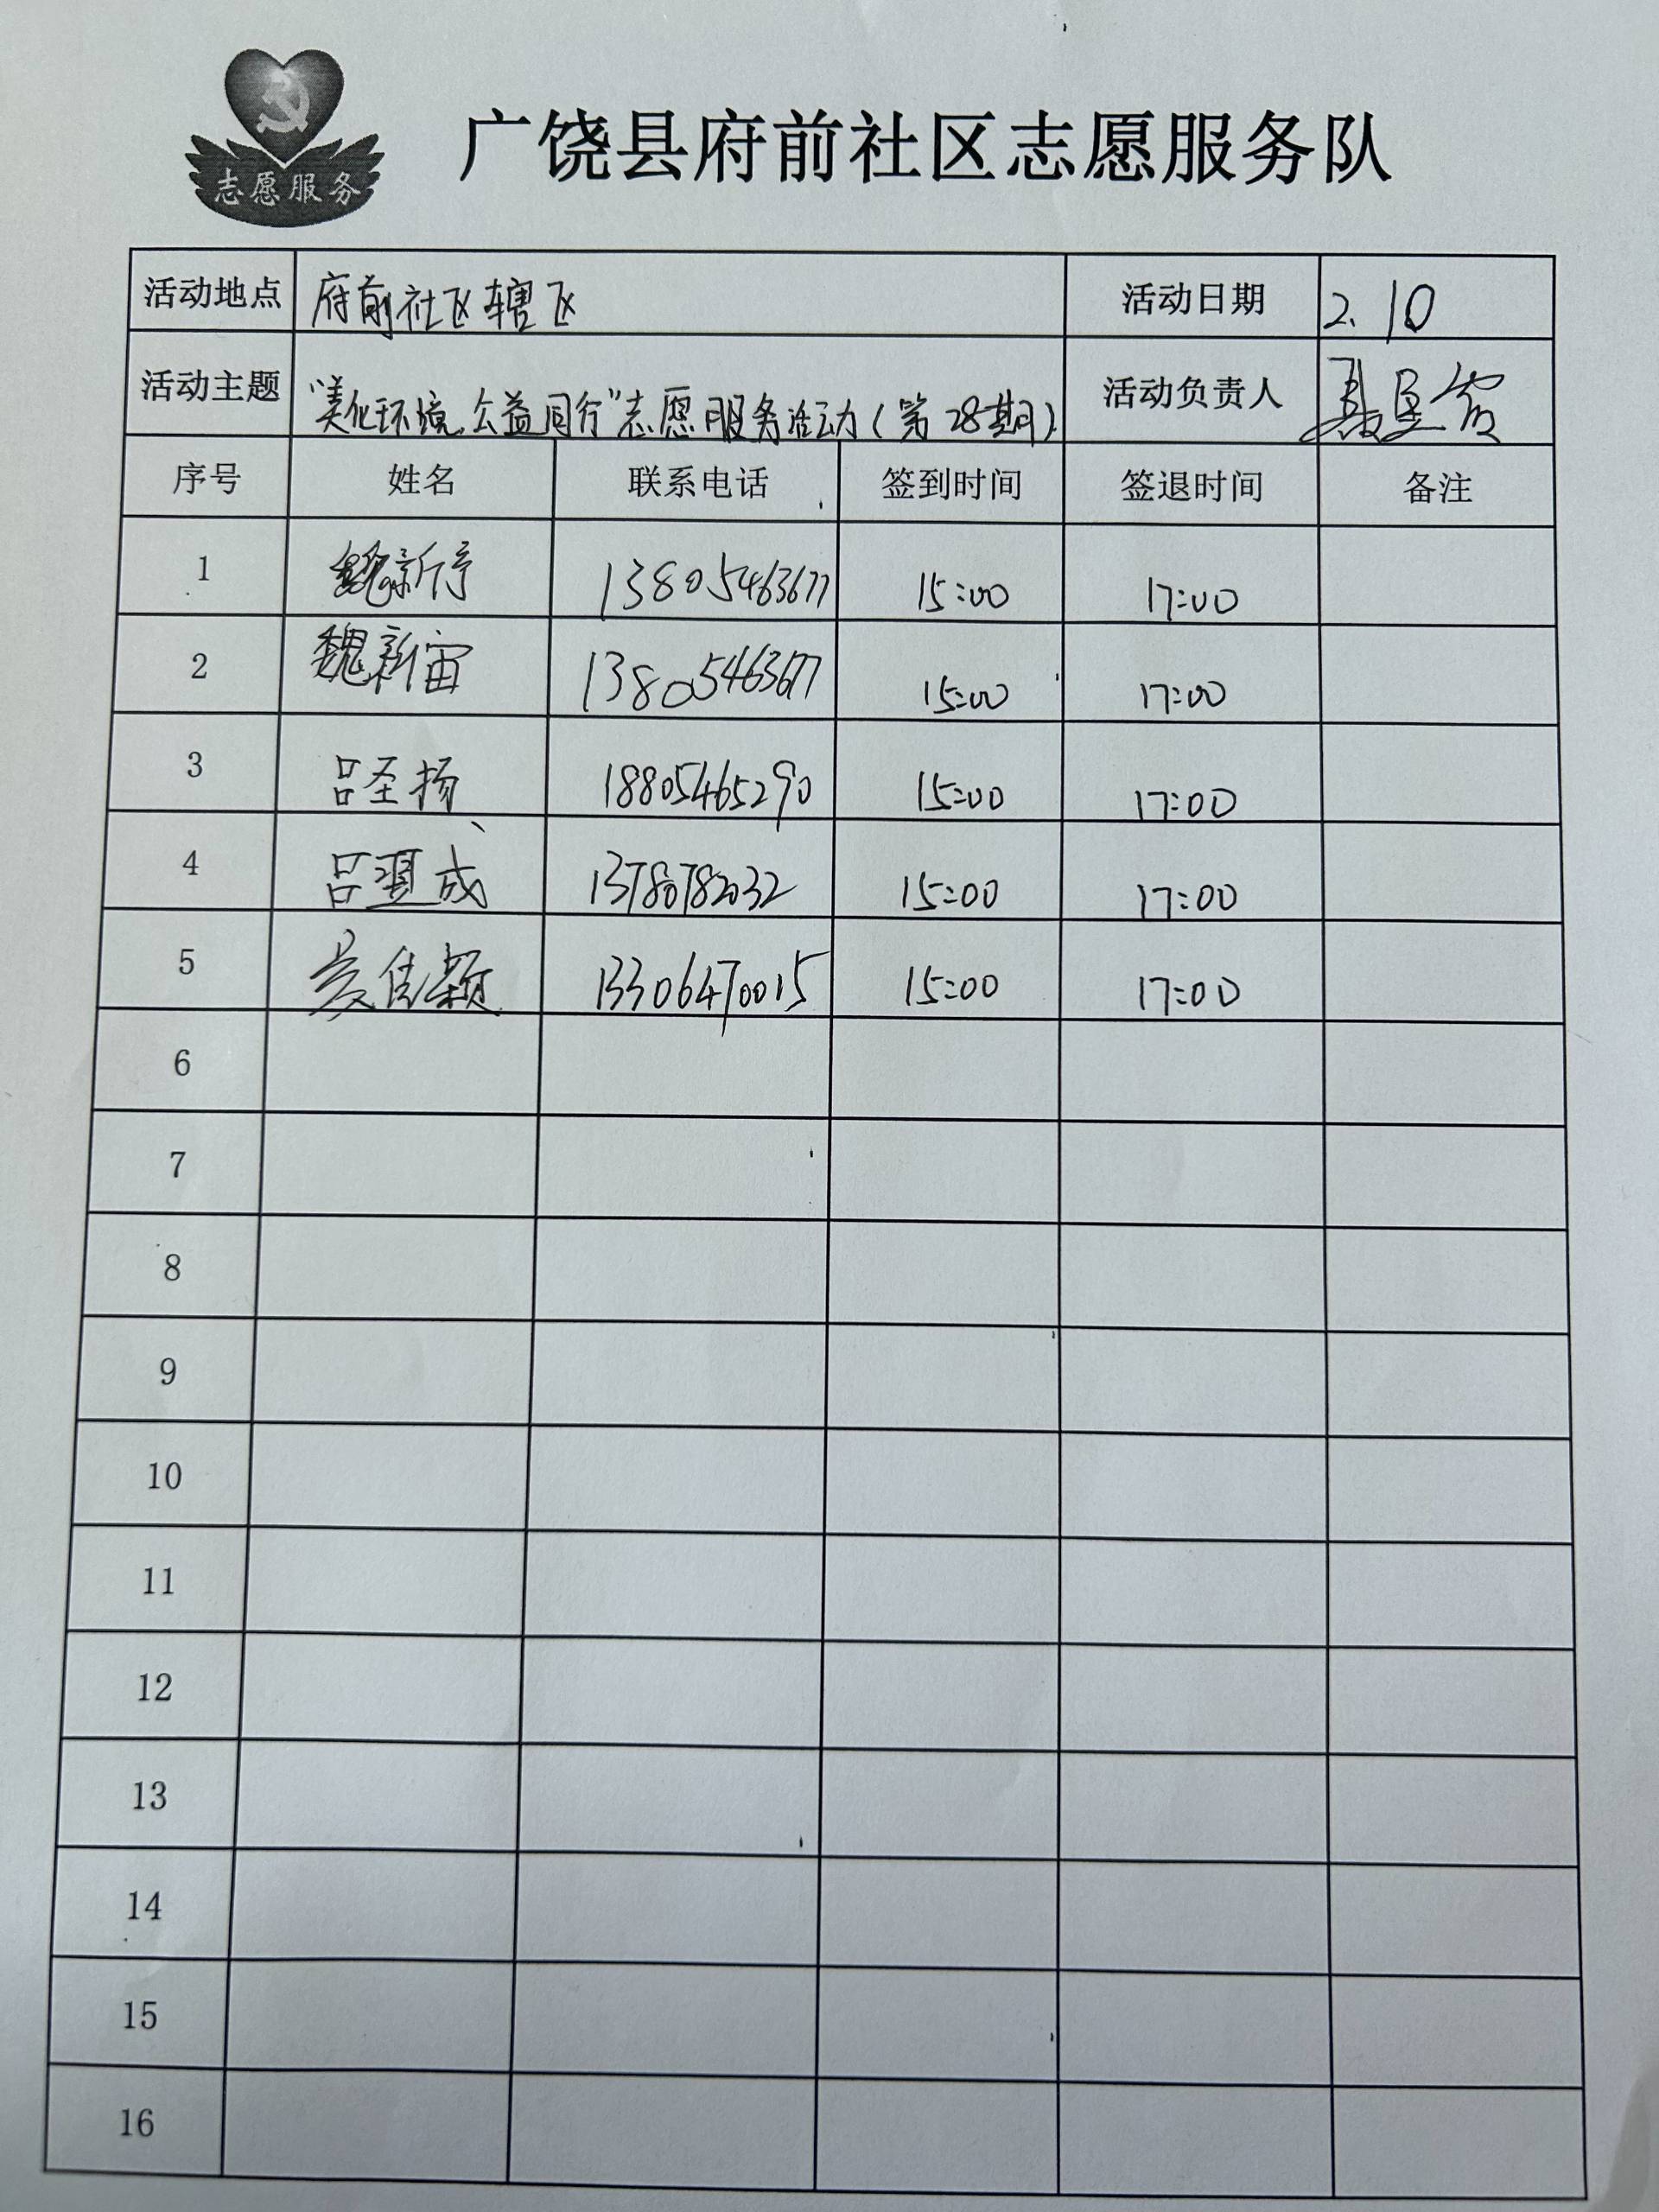 志愿服务
广饶县府前社区志愿服务队
活动地点 府前社区辖区 活动日期 2.10
活动主题 "美化环境,公益同行"志愿服务活动(第28期) 活动负责人
序号 姓名 联系电话 签到时间 签退时间 备注
1 魏新 13805463677 15:00 17:00
2 魏新宙 13805463677 15:00 17:00
3 吕圣扬 18805465290 15:00 17:00
4 吕 成 13780782032 15:00 17:00
5 佳颖 13306470015 15:00 17:00
6
7
8
9
10
11
12
13
14
15
16